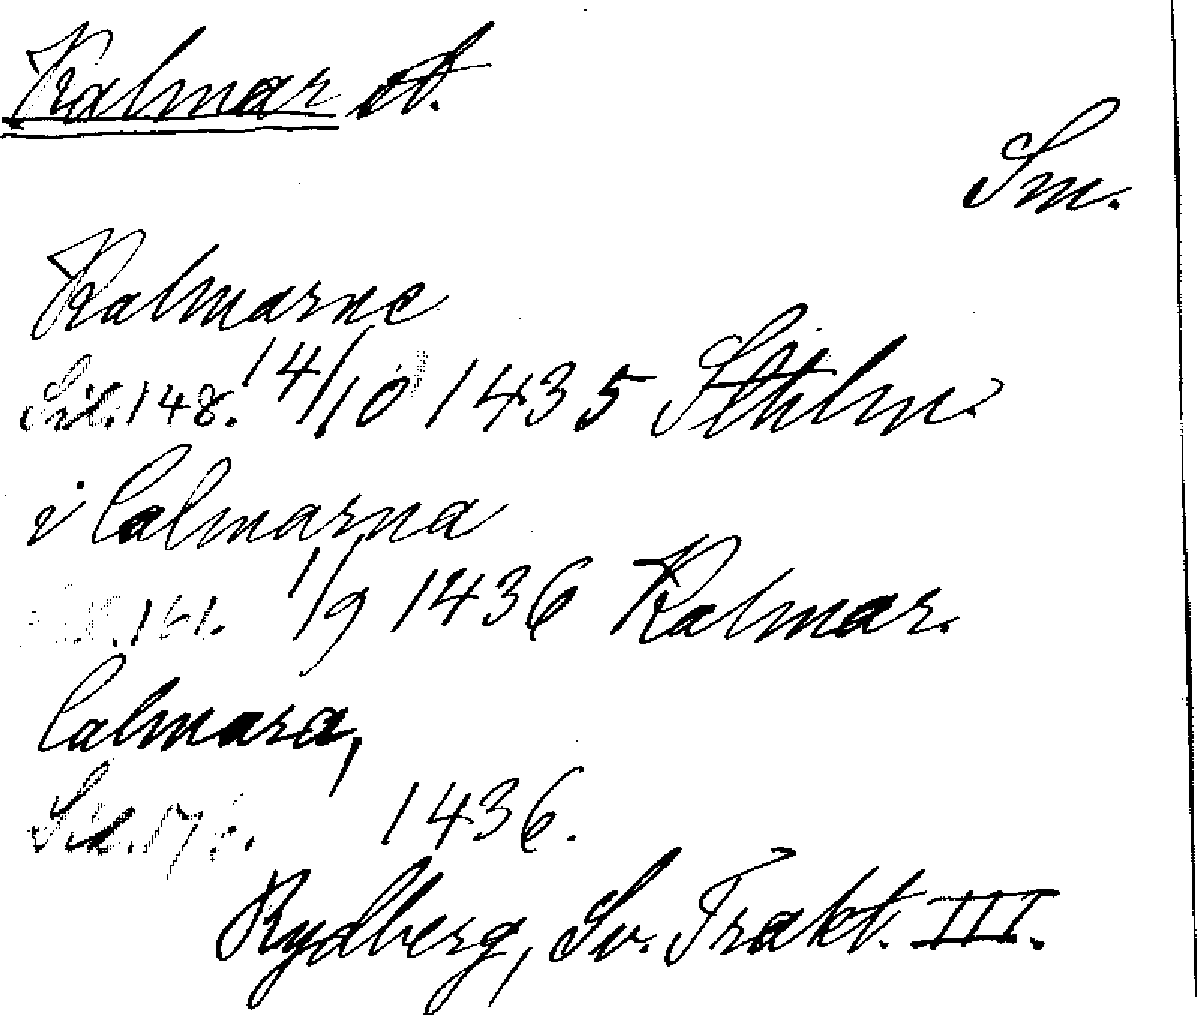 Kalmar st.
Sm.
Kalmarne
Sid. 148. 14/10 1435 Sthlm.
i Calmarna
161. 1/9 1436 Kalmar.
Calmara,
Sid. 1436.
Rydberg, Sv. Trakt. III.